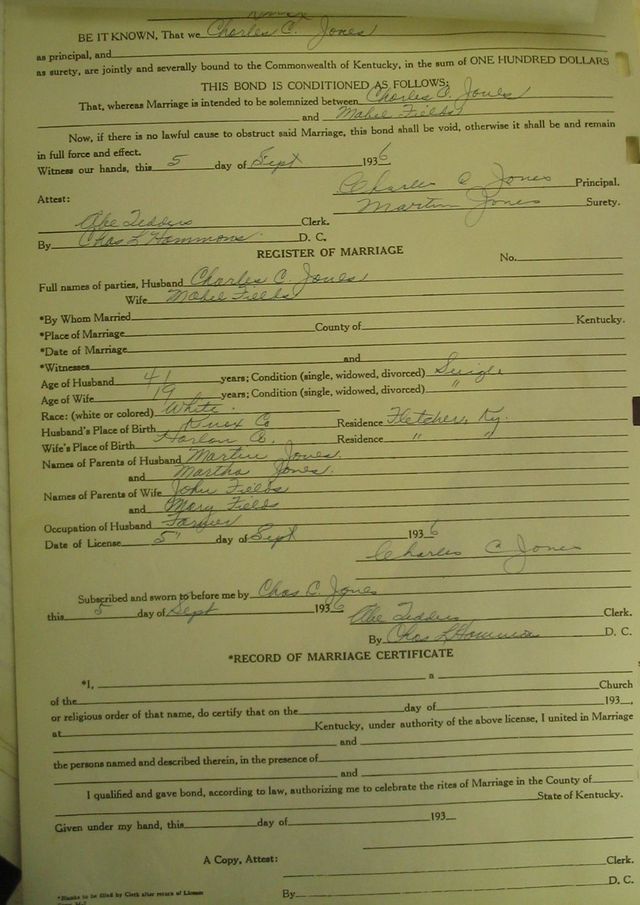 BE IT KNOWN, That we Charles C. Jones
as principal, and
as surety, are jointly and severally bound to the Commonwealth of Kentucky, in the sum of ONE HUNDRED DOLLARS
THIS BOND IS CONDITIONED AS FOLLOWS:
That, whereas Marriage is intended to be solemnized between Charles C. Jones
and Mabel Fields
Now, if there is no lawful cause to obstruct said Marriage, this bond shall be void, otherwise it shall be and remain
in full force and effect.
Witness our hands, this 5 day of Sept 1936
Charles C Jones Principal.
Attest: Martin Jones Surety.
Abe Tedders Clerk.
By Chas L Hammons. D. C.
REGISTER OF MARRIAGE
No.
Full names of parties, Husband Charles C. Jones
Wife Mabel Fields
*By Whom Married
*Place of Marriage County of Kentucky.
*Date of Marriage
*Witnesses and
Age of Husband 41 years; Condition (single, widowed, divorced) Single
Age of Wife 19 years; Condition (single, widowed, divorced) "
Race: (white or colored) White.
Husband's Place of Birth Knox Co Residence Fletcher, Ky.
Wife's Place of Birth Harlan Co. Residence " "
Names of Parents of Husband Martin Jones
and Martha Jones.
Names of Parents of Wife John Fields
and Mary Fields
Occupation of Husband Farmer
Date of License 5" day of Sept 1936
Charles C Jones
Subscribed and sworn to before me by Chas C. Jones
this 5 day of Sept 1936 Abe Tedders Clerk.
By Chas L Hammons D. C.
*RECORD OF MARRIAGE CERTIFICATE
*I, a Church
of the
or religious order of that name, do certify that on the day of 193 ,
at Kentucky, under authority of the above license, I united in Marriage
and
the persons named and described therein, in the presence of
and
I qualified and gave bond, according to law, authorizing me to celebrate the rites of Marriage in the County of
State of Kentucky.
Given under my hand, this day of 193
A Copy, Attest: Clerk.
By D. C.
*Blanks to be filled by Clerk after return of License